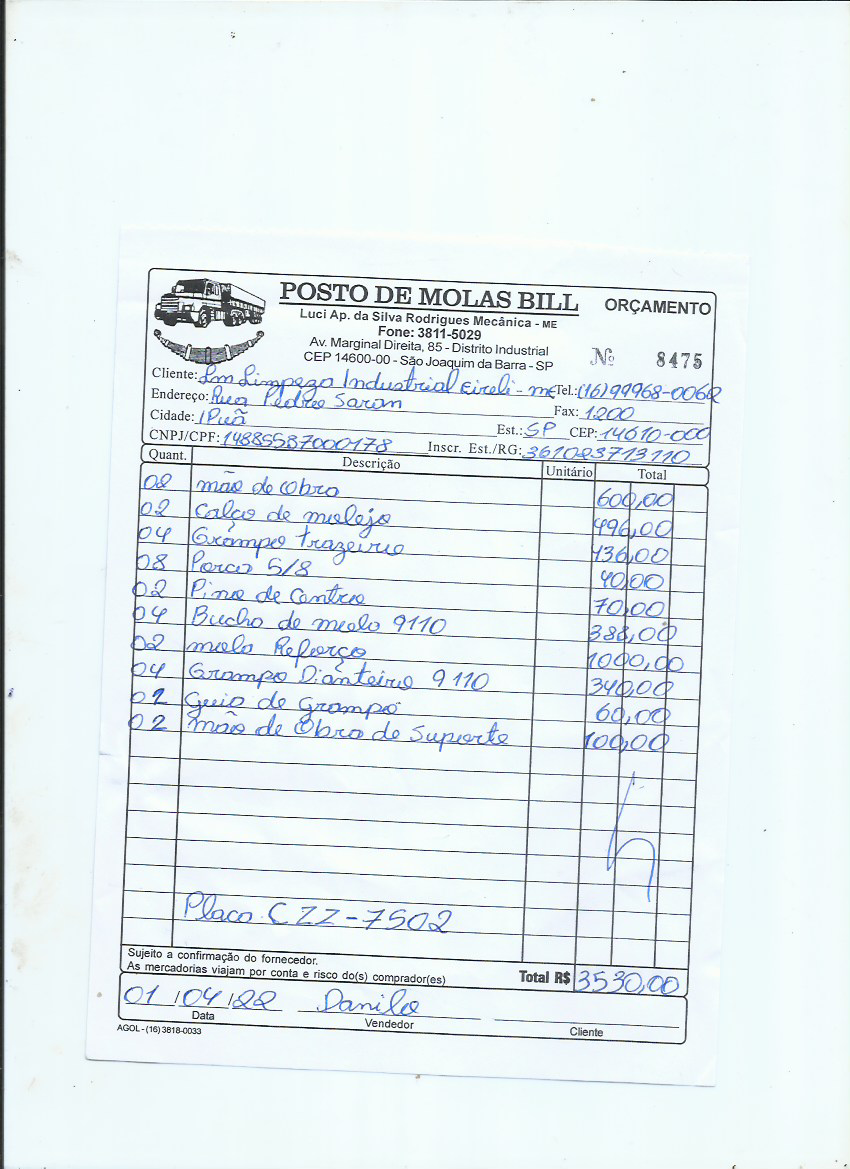 POSTO DE MOLAS BILL
ORÇAMENTO
Luci Ap. da Silva Rodrigues Mecânica - ME
Fone: 3811-5029
Av. Marginal Direita, 85 - Distrito Industrial
CEP 14600-00 - São Joaquim da Barra - SP
Nº 8475
Cliente: Lm Limpeza Industrial Eireli - ME Tel.: (16) 99968-0062
Endereço: Rua Pedro Saran Fax: 1200
Cidade: Ipuã Est.: SP CEP: 14610-000
CNPJ/CPF: 14885587000178 Inscr. Est./RG: 361023713110
Quant. Descrição Unitário Total
02 mão de obra 600,00
02 Calço de molejo 496,00
04 Grampo trazeiro 436,00
08 Porca 5/8 40,00
02 Pino de Centro 70,00
04 Bucha de mola 9110 388,00
02 mola Reforço 1000,00
04 Grampo Dianteiro 9110 340,00
02 Guia de Grampo 60,00
02 mão de Obra de Suporte 100,00
Placa CZZ-7502
Sujeito a confirmação do fornecedor.
As mercadorias viajam por conta e risco do(s) comprador(es)
Total R$ 3530,00
01/04/22 Danilo
Data Vendedor Cliente
AGOL - (16) 3818-0033